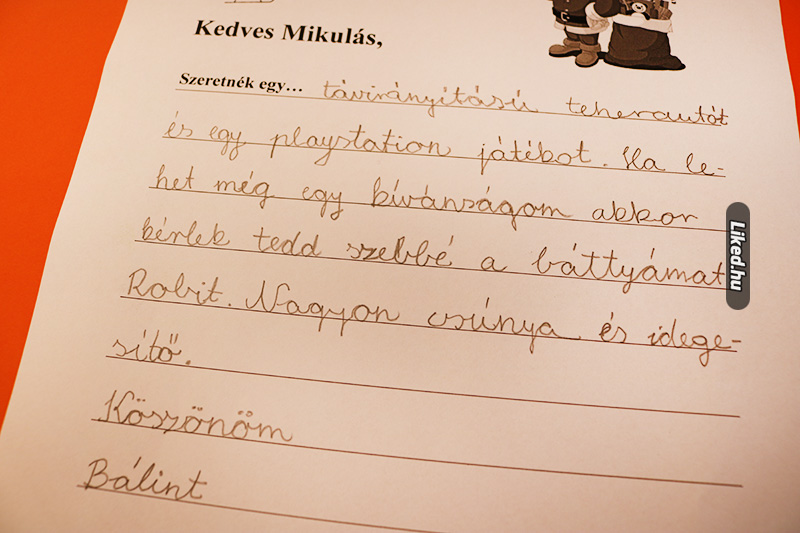 Kedves Mikulás,
Szeretnék egy... távirányitásiú teherautót
és egy playstation játékot. Ha le-
het még egy kívánságom akkor
kérlek tedd szebbé a báttyámat
Robit. Nagyon csúnya és idege-
sítő.
Köszönöm
Bálint
Liked.hu